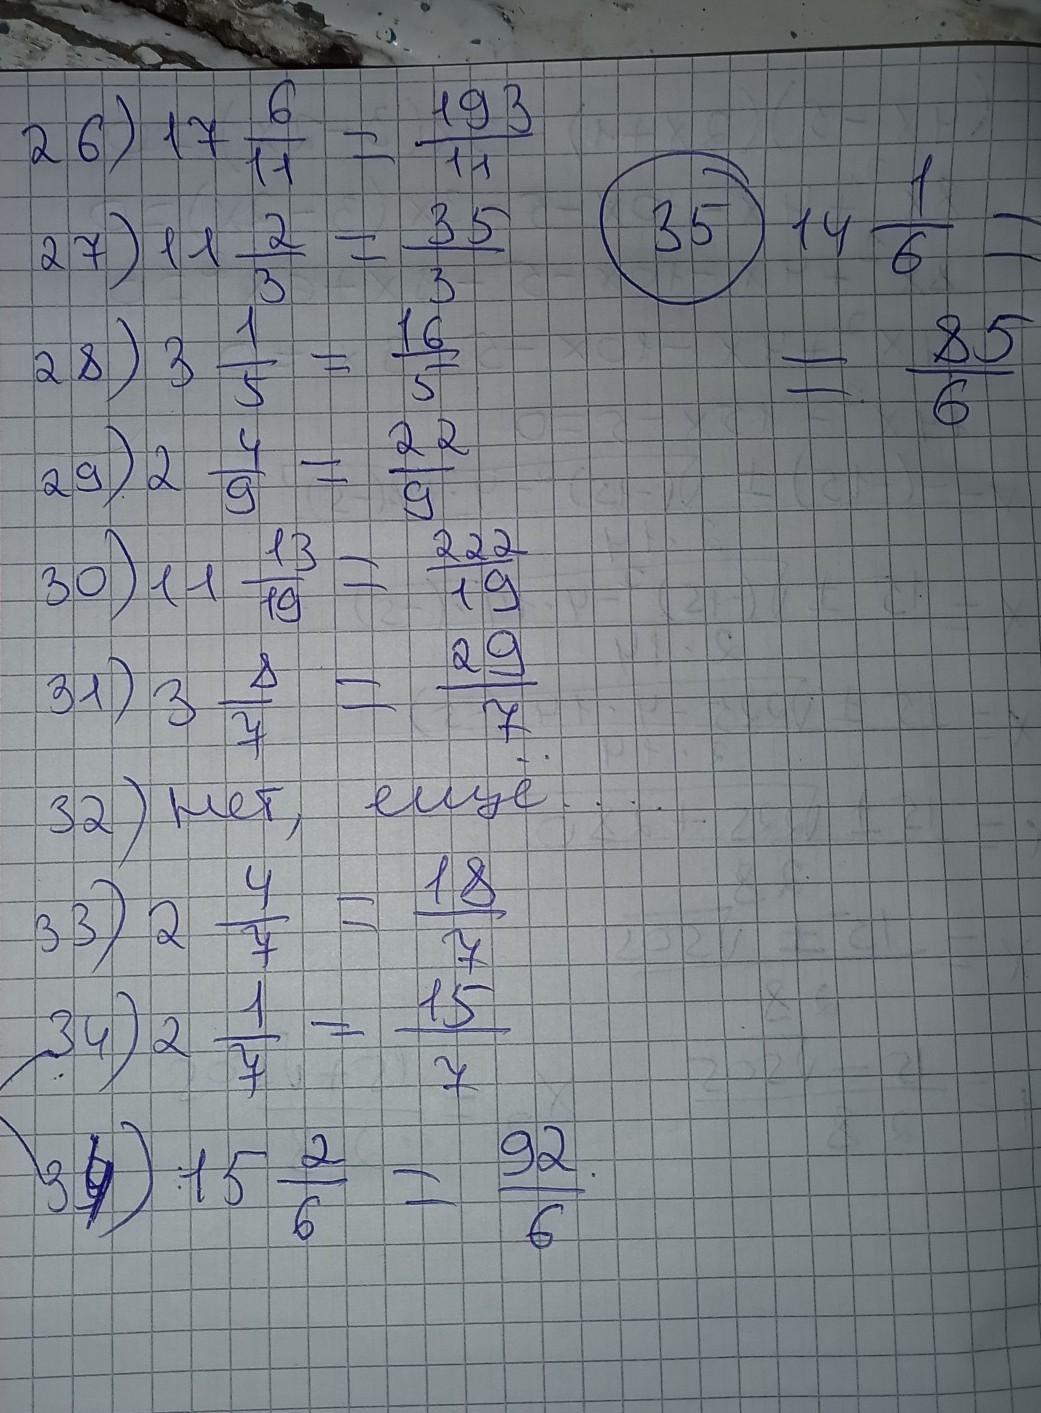 26) 17 6/11 = 193/11
27) 11 2/3 = 35/3
28) 3 1/5 = 16/5
29) 2 4/9 = 22/9
30) 11 13/19 = 222/19
31) 3 8/7 = 29/7
32) нет, ещё....
33) 2 4/7 = 18/7
34) 2 1/7 = 15/7
34) 15 2/6 = 92/6
35 14 1/6 =
= 85/6